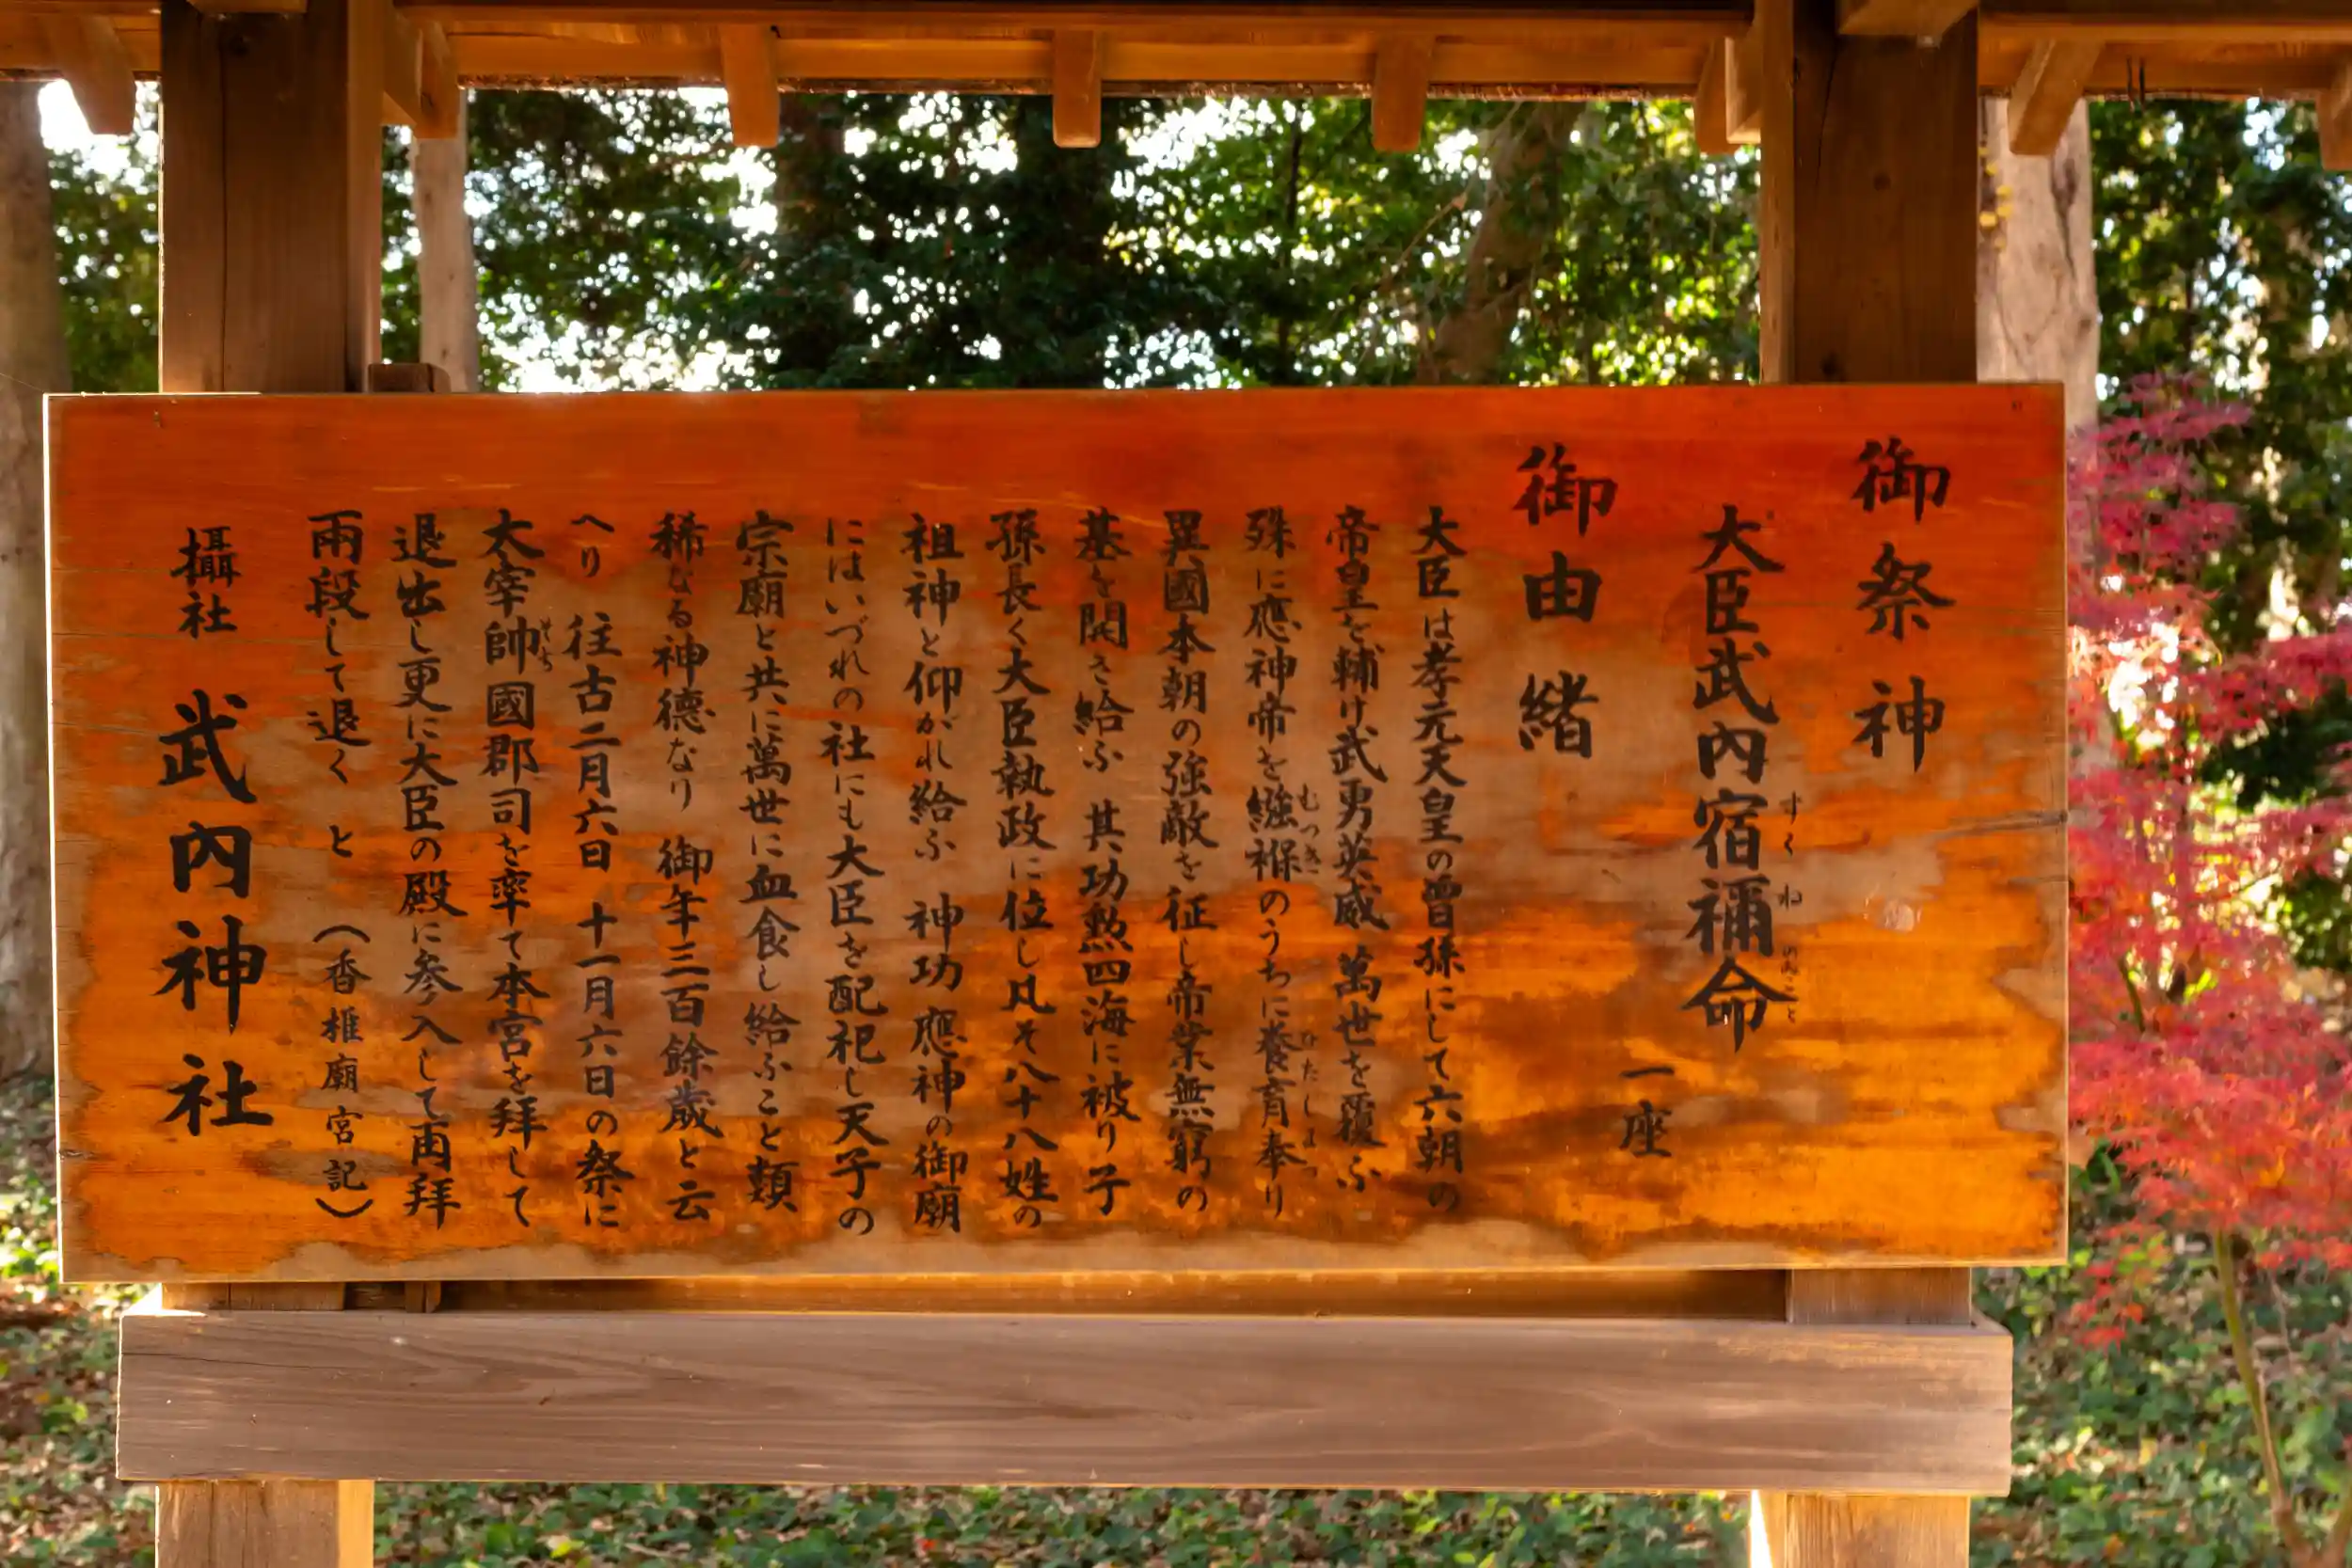 御祭神
大臣武內宿禰命
すくねのみこと
一座
御由緒
大臣は孝元天皇の曽孫にして六朝の
帝皇を輔け武勇英威 萬世を覆ふ
殊に應神帝を襁褓のうちに養育奉り
むつき ひたしまつ
異國本朝の強敵を征し帝業無窮の
基を開き給ふ 其功勲四海に被り子
孫長く大臣執政に位し凡そ八十八姓の
祖神と仰がれ給ふ 神功應神の御廟
にはいづれの社にも大臣を配祀し天子の
宗廟と共に萬世に血食し給ふこと類
稀なる神德なり 御年三百餘歲と云
へり 往古二月六日 十一月六日の祭に
大宰帥國郡司を率て本宮を拜して
そち
退出し更に大臣の殿に参入して両拜
兩段して退く と (香椎廟宮記)
攝社 武內神社